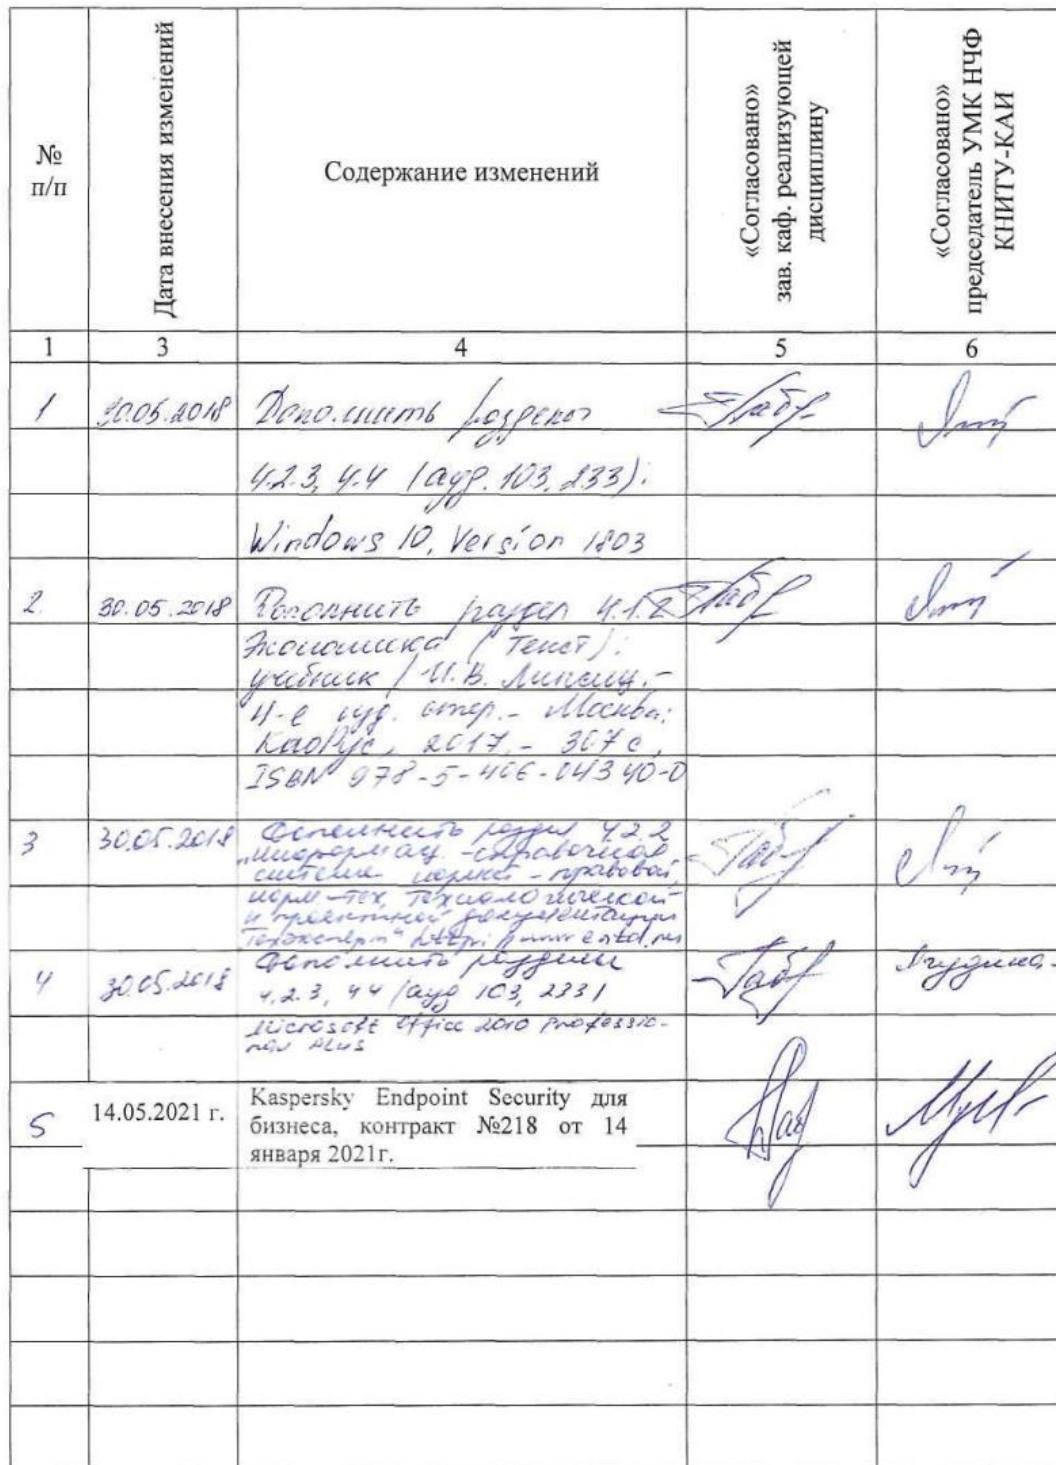 №
п/п
Дата внесения изменений
Содержание изменений
«Согласовано»
зав. каф. реализующей
дисциплину
«Согласовано»
председатель УМК НЧФ
КНИТУ-КАИ
1 3 4 5 6
1 30.05.2018 Дополнить разделы
4.2.3, 4.4 (ауд. 103, 233):
Windows 10, Version 1803
2. 30.05.2018 Дополнить раздел 4.1.2
Экономика (Текст):
учебник / И.В. Липсиц. -
4-е изд. стер. - Москва:
КноРус, 2017. - 307 с.
ISBN 978-5-406-04340-0
3 30.05.2018 Дополнить раздел 4.2.2
"Информац. -справочная
система нормат - правовой,
норм-тех, технологической
и проектной документации
Техэксперт" http:
4 30.05.2018 Дополнить разделы
4.2.3, 4.4 (ауд 103, 233)
Microsoft Office 2010 Professio-
nal Plus
5 14.05.2021 г. Kaspersky Endpoint Security для
бизнеса, контракт №218 от 14
января 2021г.